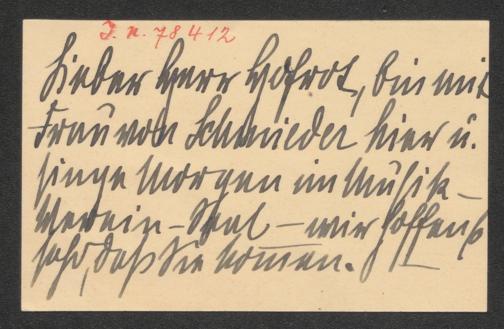 I. N. 78412
Lieber Herr Hofrat, bin mit
Frau von Schmieder hier u.
singe Morgen im Musik-
Verein-Saal – wir hoffen
sehr, daß Sie kommen.